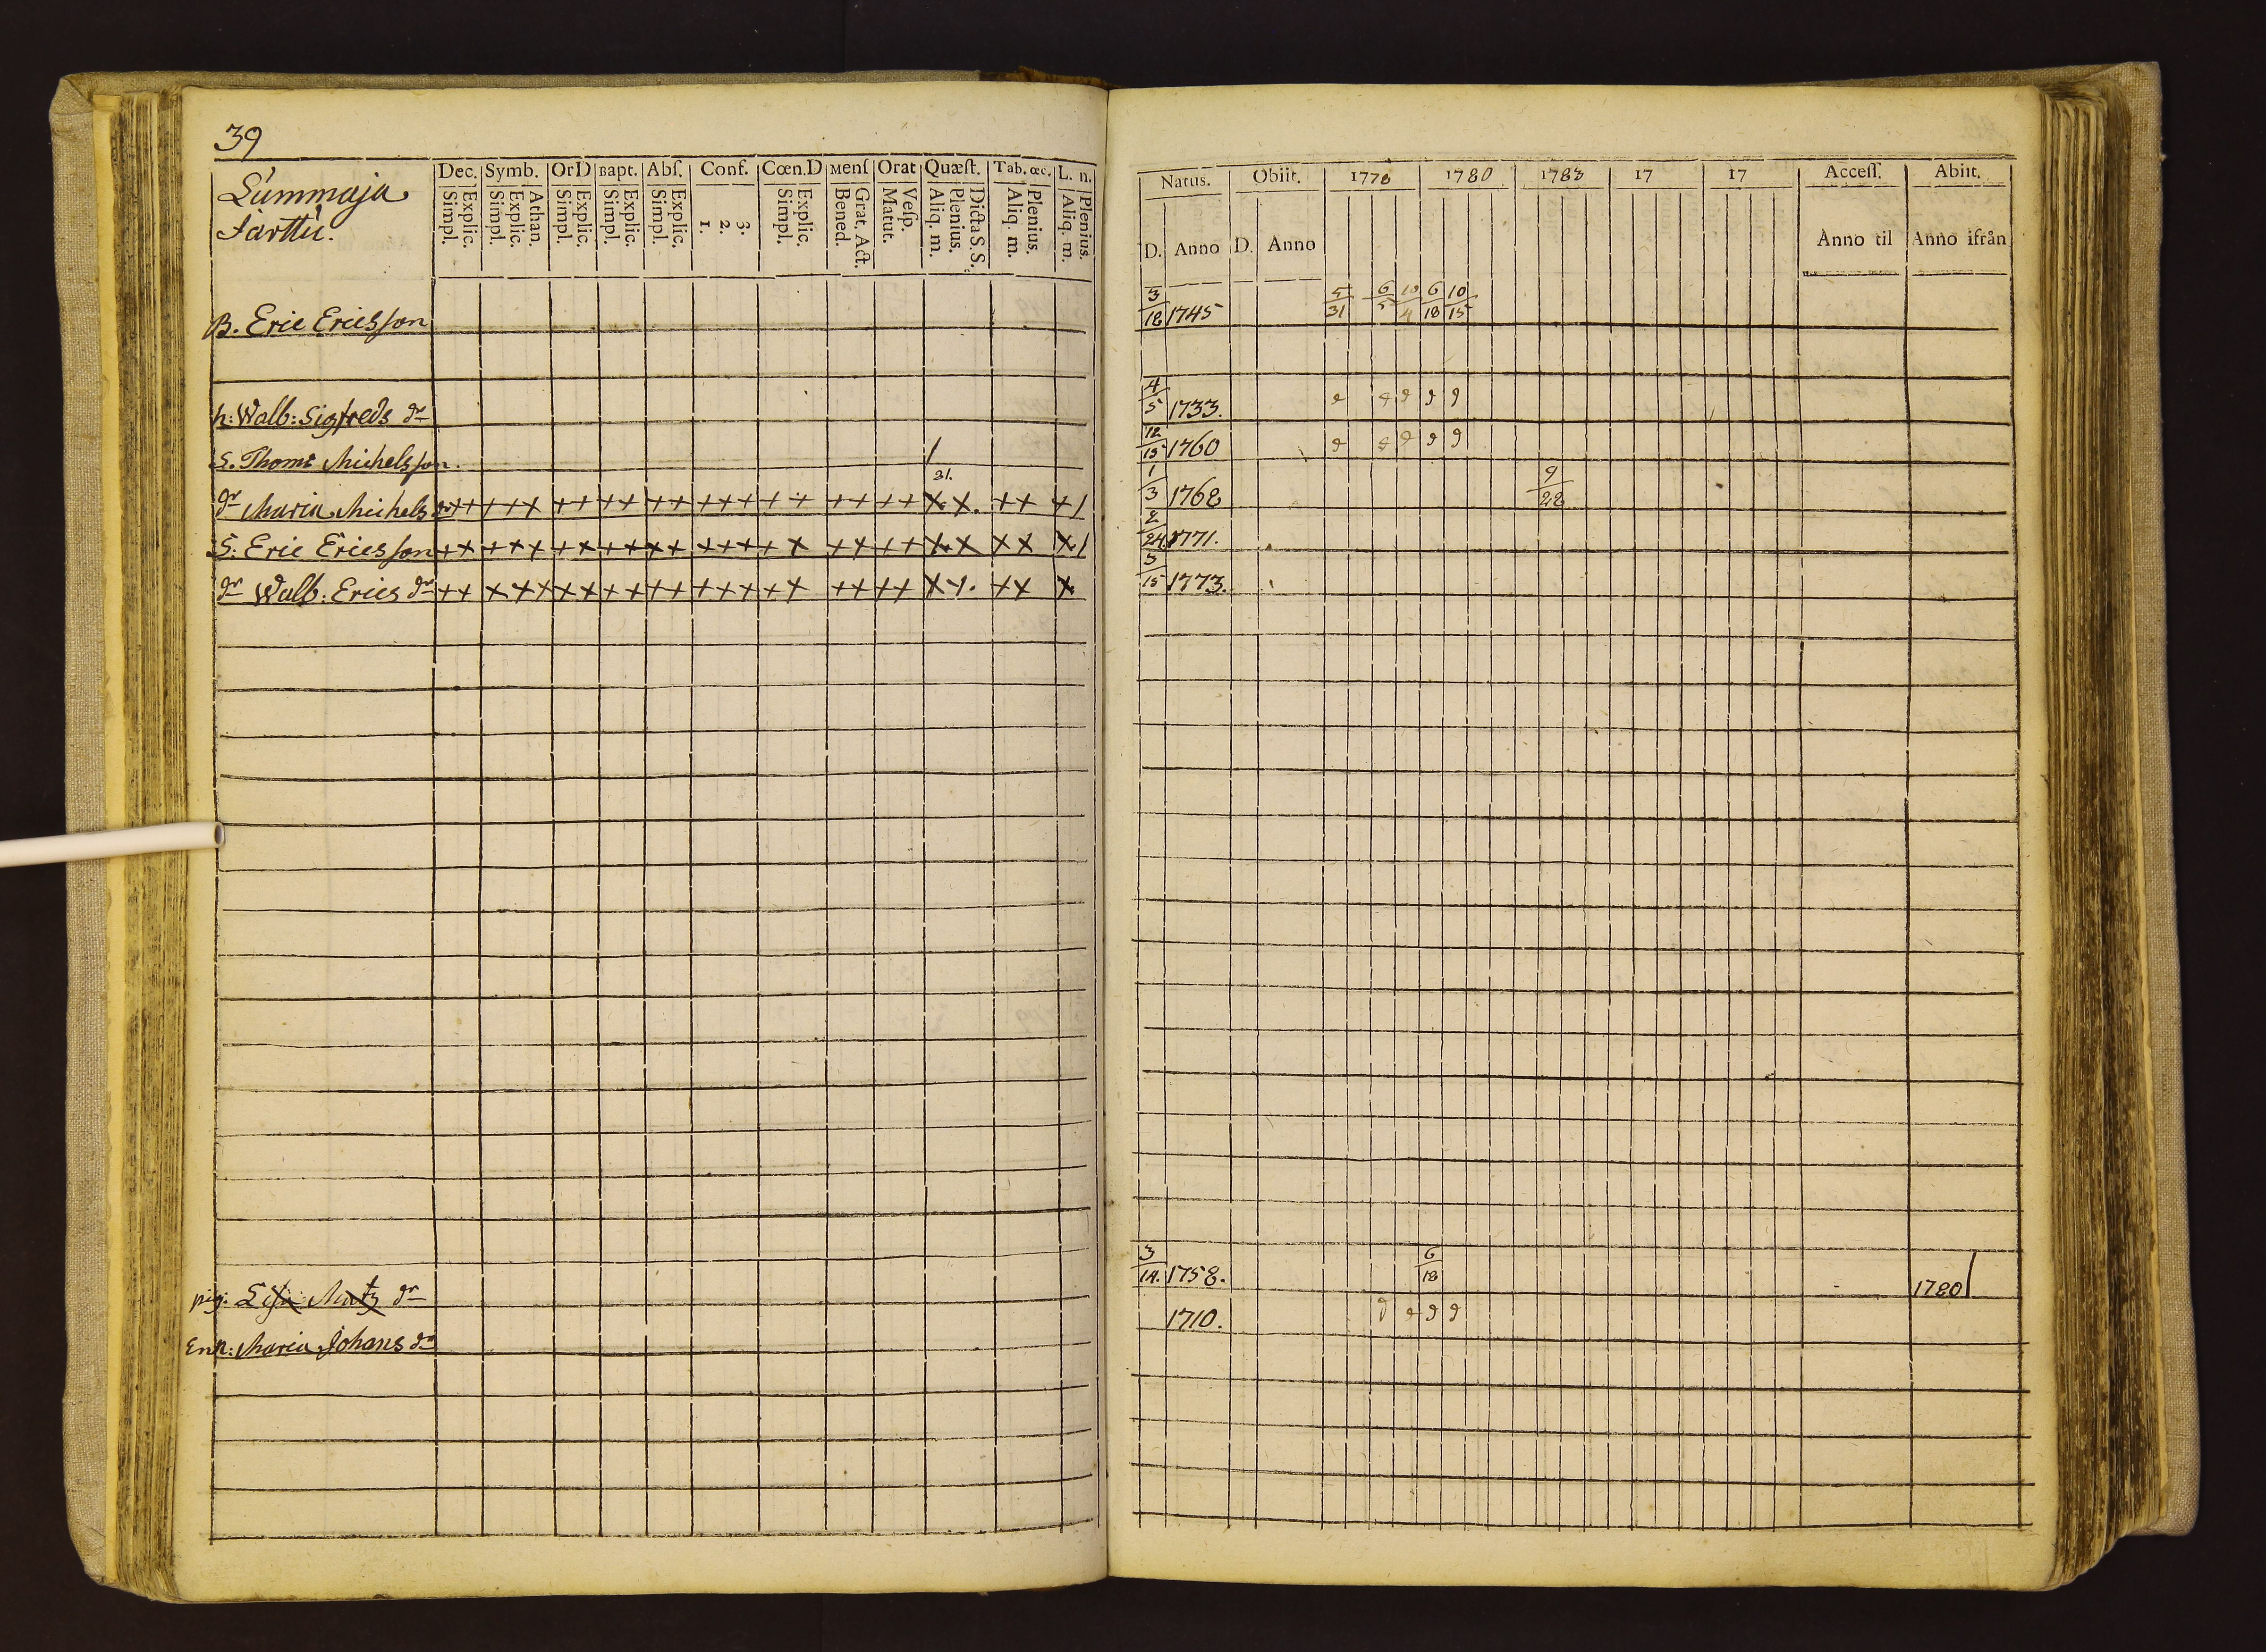 39
Dec. Symb. OrD Bapt. Abſ. Conf. Cœn.D Menſ Orat Quæſt. Tab. œc. L. n.
Explic. Simpl. Athan. Explic. Simpl. Explic. Simpl. Explic. Simpl. Explic. Simpl. 3. 2. 1. Explic. Simpl. Grat. Act. Bened. Veſp. Matut. Dicta S. S. Plenius. Aliq. m. Plenius. Aliq. m. Plenius. Aliq. m.
Summaja
Parttu.
B. Eric Ericsson
h: Walb: Sigfreds dr
S. Thoms Michelsson.
dr Maria Michels dr ++ +++ ++ ++ ++ +++ ++ ++ ++ 81. x x. ++ + /
S: Eric Ericsson ++ +++ ++ ++ ++ +++ + x ++ ++ x x x x x /
dr Walb: Erics dr ++ +++ ++ ++ ++ +++ + x ++ ++ x x. ++ x
pig: Lisa Matz dr
Enk: Maria Johans dr
Natus. Obiit. 1778 1780 1783 17 17 Acceſſ. Abiit.
D. Anno D. Anno Anno til Anno ifrån
3/18 1745 5/31 6/5 10/4 6/18 10/15
4/5 1733.
12/15 1760
1/3 1768 9/28
2/24 1771.
3/15 1773.
3/14. 1758. 6/18 1780
1710.